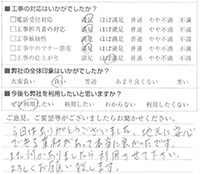 ■工事の対応はいかがでしたか？
□電話受付対応 満足 ほぼ満足 普通 やや不満 不満
□工事担当者の対応 満足 ほぼ満足 普通 やや不満 不満
□工事技術性 満足 ほぼ満足 普通 やや不満 不満
□工事中のマナー態度 満足 ほぼ満足 普通 やや不満 不満
□工事の仕上がり 満足 ほぼ満足 普通 やや不満 不満
■弊社の全体印象はいかがでしたか？
大変良い 良い 普通 あまり良くない 悪い
■今後も弊社を利用したいと思いますか？
ぜひ利用したい 利用したい わからない 利用したくない
ご意見、ご要望等がございましたらお聞かせ下さい。
今日はありがとうございました。地元に安心
できる業者があって本当に良かったです。
また何かありましたら利用させて下さい。
よろしくお願い致します。